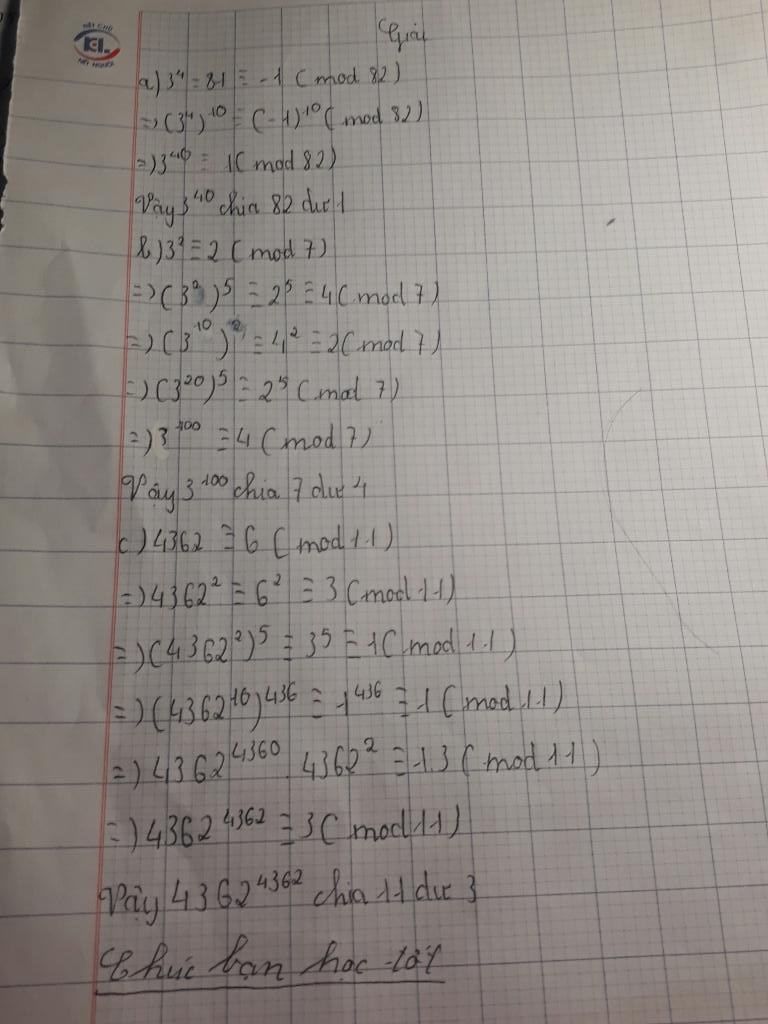 Giải
a) 3⁴ = 81 ≡ -1 (mod 82)
=> (3⁴)¹⁰ ≡ (-1)¹⁰ (mod 82)
=> 3⁴⁰ ≡ 1 (mod 82)
Vậy 3⁴⁰ chia 82 dư 1
b) 3² ≡ 2 (mod 7)
=> (3²)⁵ ≡ 2⁵ ≡ 4 (mod 7)
=> (3¹⁰)² ≡ 4² ≡ 2 (mod 7)
=> (3²⁰)⁵ ≡ 2⁵ (mod 7)
=> 3¹⁰⁰ ≡ 4 (mod 7)
Vậy 3¹⁰⁰ chia 7 dư 4
c) 4362 ≡ 6 (mod 11)
=> 4362² ≡ 6² ≡ 3 (mod 11)
=> (4362²)⁵ ≡ 3⁵ ≡ 1 (mod 11)
=> (4362¹⁰)⁴³⁶ ≡ 1⁴³⁶ ≡ 1 (mod 11)
=> 4362⁴³⁶⁰ . 4362² ≡ 1.3 (mod 11)
=> 4362⁴³⁶² ≡ 3 (mod 11)
Vậy 4362⁴³⁶² chia 11 dư 3
Chúc bạn học tốt